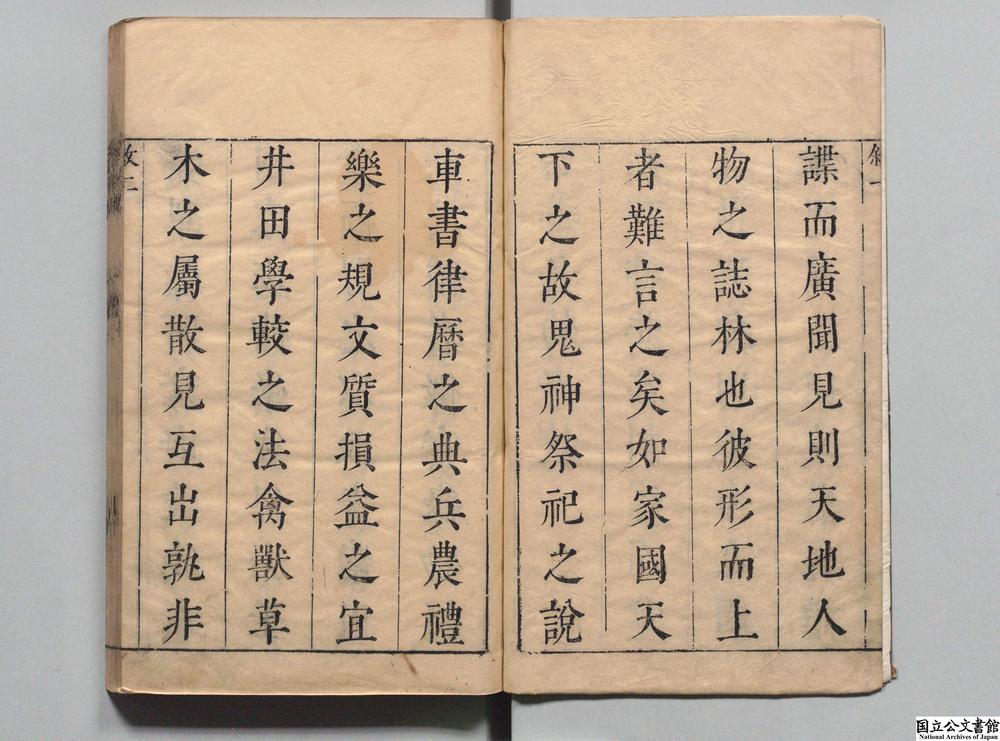 諜而廣聞見則天地人
物之誌林也彼形而上
者難言之矣如家國天
下之故鬼神祭祀之說
車書律曆之典兵農禮
樂之規文質損益之宜
井田學較之法禽獸草
木之屬散見互出孰非
国立公文書館
National Archives of Japan